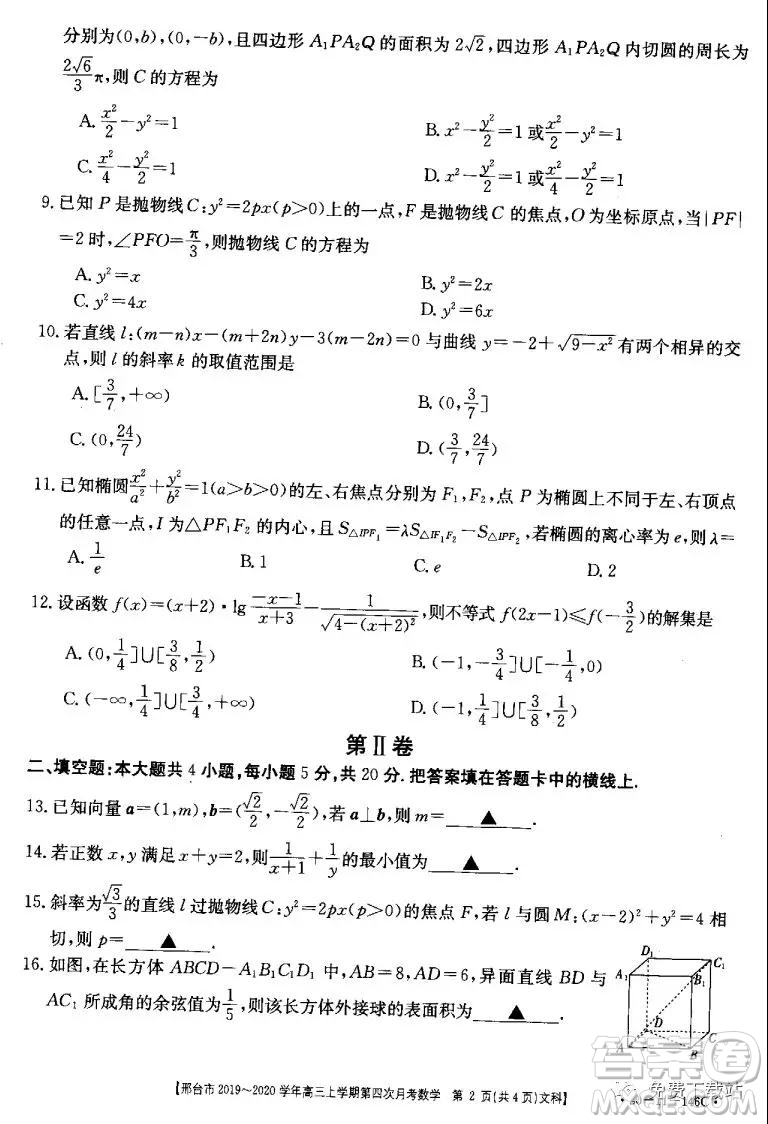 分别为(0,b),(0,-b),且四边形 A₁PA₂Q 的面积为 2√2,四边形 A₁PA₂Q 内切圆的周长为
2√6/3 π,则 C 的方程为
A. x²/2-y²=1 B. x²-y²/2=1 或 x²/2-y²=1
C. x²/4-y²/2=1 D. x²-y²/2=1 或 x²/4-y²/2=1
9. 已知 P 是抛物线 C:y²=2px(p>0)上的一点,F 是抛物线 C 的焦点,O 为坐标原点,当|PF|
=2 时,∠PFO=π/3,则抛物线 C 的方程为
A. y²=x B. y²=2x
C. y²=4x D. y²=6x
10. 若直线 l:(m-n)x-(m+2n)y-3(m-2n)=0 与曲线 y=-2+√(9-x²) 有两个相异的交
点,则 l 的斜率 k 的取值范围是
A. [3/7,+∞) B. (0,3/7]
C. (0,24/7) D. (3/7,24/7)
11. 已知椭圆 x²/a²+y²/b²=1(a>b>0)的左、右焦点分别为 F₁,F₂,点 P 为椭圆上不同于左、右顶点
的任意一点,I 为△PF₁F₂ 的内心,且 S△IPF₁=λS△IF₁F₂-S△IPF₂,若椭圆的离心率为 e,则 λ=
A. 1/e B. 1 C. e D. 2
12. 设函数 f(x)=(x+2)·lg (-x-1)/(x+3) - 1/√(4-(x+2)²),则不等式 f(2x-1)≤f(-3/2)的解集是
A. (0,1/4]∪[3/8,1/2) B. (-1,-3/4]∪[-1/4,0)
C. (-∞,1/4]∪[3/4,+∞) D. (-1,1/4]∪[3/8,1/2)
第Ⅱ卷
二、填空题:本大题共 4 小题,每小题 5 分,共 20 分.把答案填在答题卡中的横线上.
13. 已知向量 a=(1,m),b=(√2/2,-√2/2),若 a⊥b,则 m=▲.
14. 若正数 x,y 满足 x+y=2,则 1/(x+1)+1/y 的最小值为▲.
15. 斜率为 √3/3 的直线 l 过抛物线 C:y²=2px(p>0)的焦点 F,若 l 与圆 M:(x-2)²+y²=4 相
切,则 p=▲.
16. 如图,在长方体 ABCD-A₁B₁C₁D₁ 中,AB=8,AD=6,异面直线 BD 与
AC₁ 所成角的余弦值为 1/5,则该长方体外接球的表面积为▲.
D₁
C₁
A₁
B₁
D
C
A
B
【邢台市 2019~2020 学年高三上学期第四次月考数学 第 2 页(共 4 页)文科】
146C
免费下载站